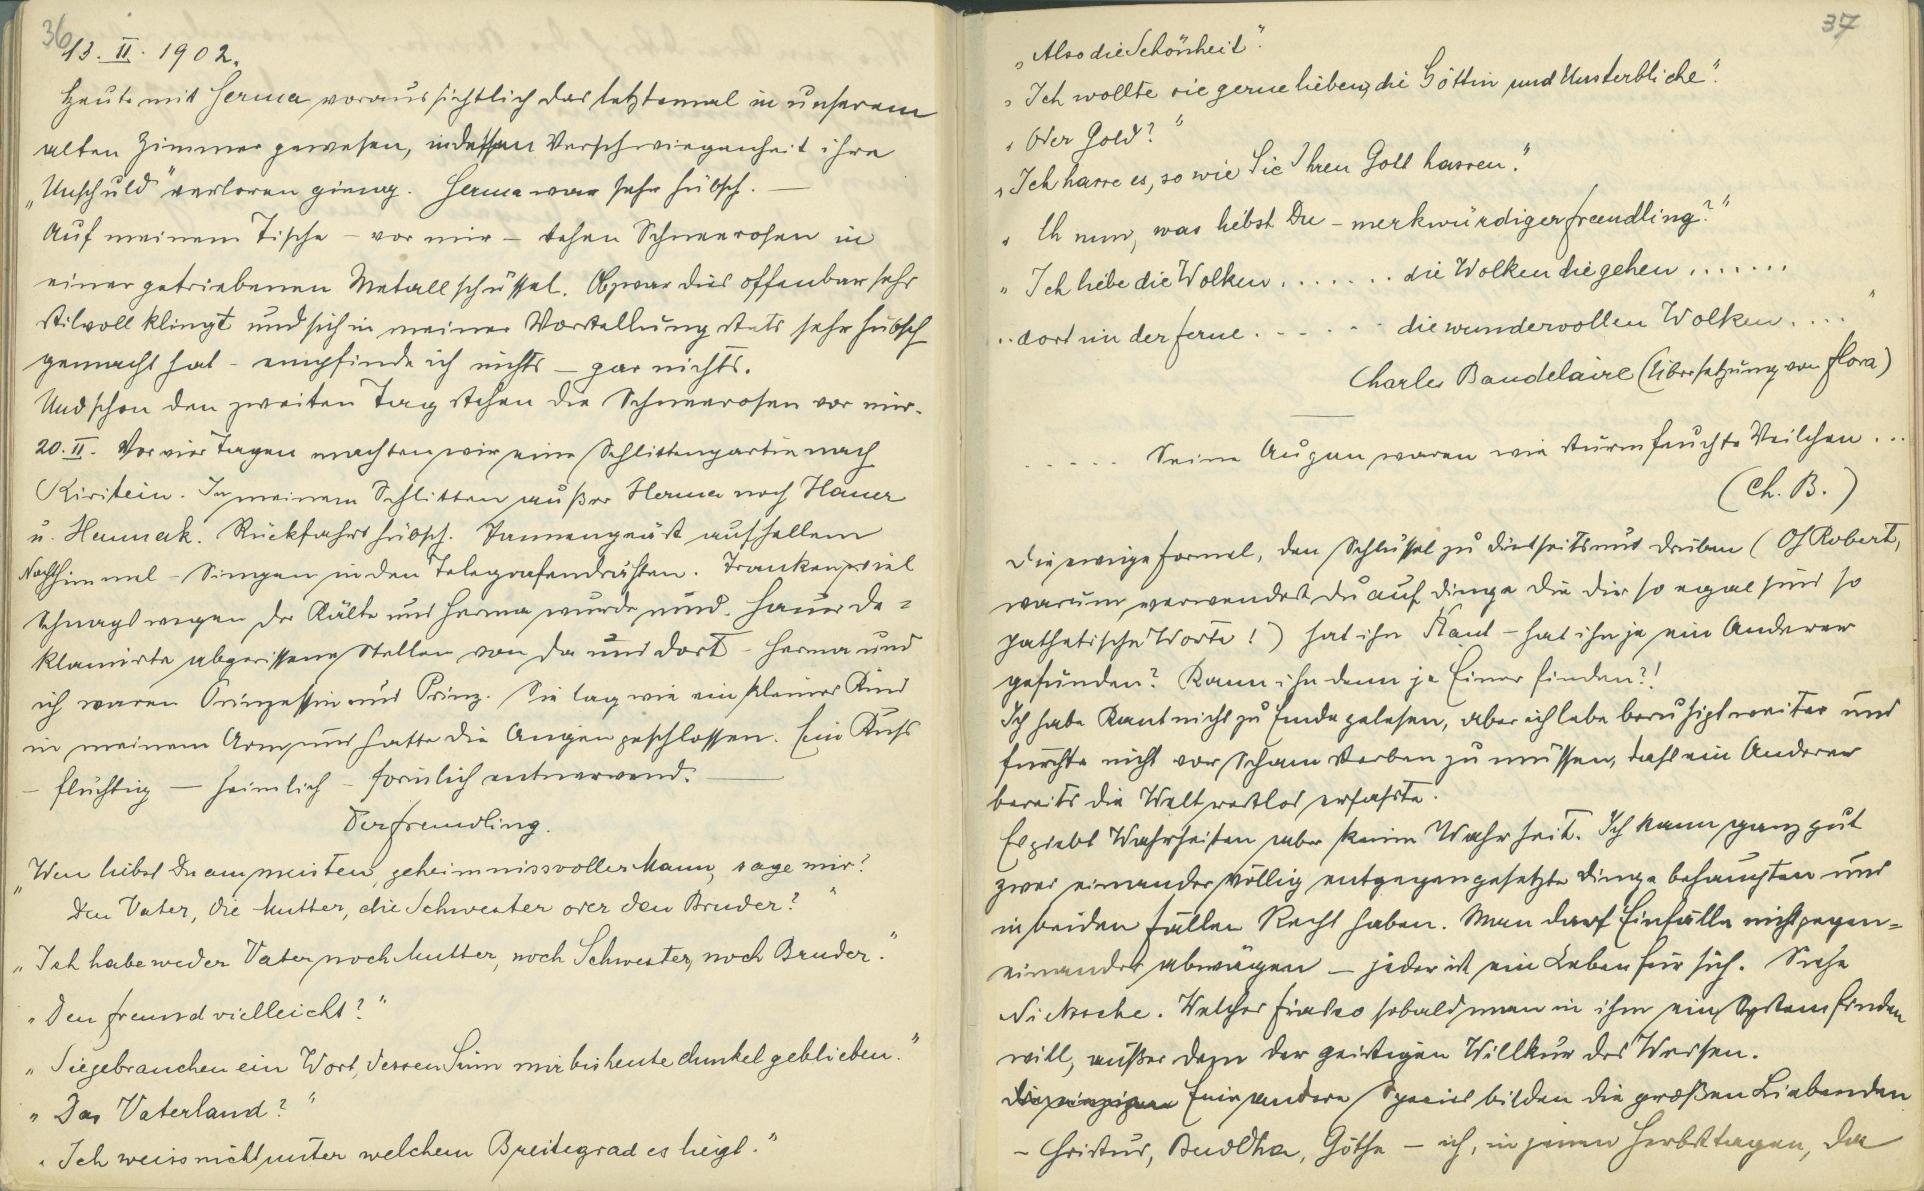 36
13. II. 1902.
Heute mit Herma voraussichtlich das letztemal in unserem
alten Zimmer gewesen, in dessen Verschwiegenheit ihre
„Unschuld" verloren gieng. Herma war sehr hübsch. —
Auf meinem Tische – vor mir – stehen Schneerosen in
einer getriebenen Metallschüssel. Obzwar dies offenbar sehr
stilvoll klingt und sich in meiner Vorstellung stets sehr hübsch
gemacht hat – empfinde ich nichts – gar nichts.
Und schon den zweiten Tag stehen die Schneerosen vor mir.
20. II. Vor vier Tagen machten wir eine Schlittenpartie nach
Kiritein. In meinem Schlitten außer Herma noch Hauer
u. Hannak. Rückfahrt hübsch. Tannengeäst auf hellem
Nachthimmel – Singen in den Telegrafendrähten. Tranken viel
Schnaps wegen der Kälte und Herma wurde müd. Hauer de=
klamirte abgerissene Stellen von da und dort – Herma und
ich waren Prinzessin und Prinz. Sie lag wie ein kleines Kind
in meinem Arm und hatte die Augen geschlossen. Ein Kuss
– flüchtig – heimlich – förmlich entnervend. —
Der Fremdling.
„Wen liebst Du am meisten, geheimnissvoller Mann, sage mir?
Den Vater, die Mutter, die Schwester oder den Bruder?"
„Ich habe weder Vater noch Mutter, noch Schwester, noch Bruder."
„Den Freund vielleicht?"
„Sie gebrauchen ein Wort, dessen Sinn mir bis heute dunkel geblieben."
„Das Vaterland?"
„Ich weiss nicht unter welchem Breitegrad es liegt."
37
„Also die Schönheit".
„Ich wollte sie gerne lieben, die Göttin und Unsterbliche".
„Oder Gold?"
„Ich hasse es, so wie Sie Ihren Gott hassen."
„Eh nun, was liebst Du – merkwürdiger Fremdling?"
„Ich liebe die Wolken ....... die Wolken die gehen .......
.. dort in der Ferne ...... die wundervollen Wolken ...."
Charles Baudelaire (Übersetzung von Flora)
..... Seine Augen waren wie sturmfeuchte Veilchen ...
(Ch. B.)
Die ewige Formel, den Schlüssel zu diesseits und drüben (Oh Robert,
warum verwendest Du auf Dinge die dir so egal sind so
pathetische Worte!) hat ihn Kant – hat ihn je ein Anderer
gefunden? Kann ihn denn je Einer finden?!
Ich habe Kant nicht zu Ende gelesen, aber ich lebe beruhigt weiter und
fürchte nicht vor Scham sterben zu müssen, dass ein Anderer
bereits die Welt restlos erfasste.
Es giebt Wahrheiten aber keine Wahrheit. Ich kann ganz gut
zwei einander völlig entgegengesetzte Dinge behaupten und
in beiden Fällen Recht haben. Man darf Einfälle nicht gegen=
einander abwägen – jeder ist ein Leben für sich. Siehe
Nietzsche. Welches Fiasco sobald man in ihm ein System finden
will, außer dem der geistigen Willkür des Weisen.
Eine andere Species bilden die großen Liebenden
– Christus, Buddha, Göthe – ich, in jenen Herbsttagen, da